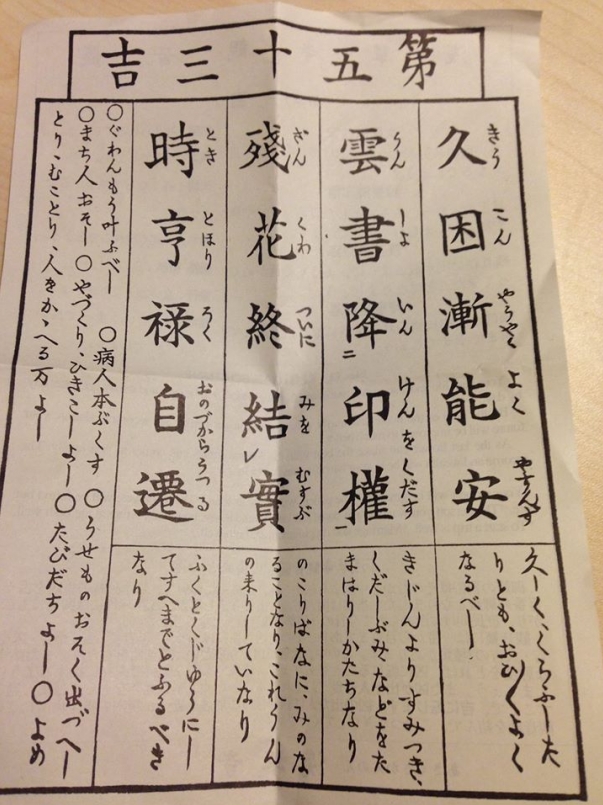 第五十三吉
きう こん やうやく よく やすんず
久困漸能安
久しくくらふした
りとも、おひ〱よく
なるべし
うん しよ いん けん をくだす
雲書降二印權一
きじんよりすみつき、
くだしぶみ、などをた
まはりしかたちなり
ざん くわ ついに みを むすぶ
殘花終結レ實
のこりばなに、みのな
ることなり、これうん
の来りしていなり
とき とほり ろく おのづからうつる
時亨禄自遷
ふくとくじゆうにし
てすへまでとふるべき
なり
〇ぐわんもう叶ふべし 〇病人本ぶくす 〇うせものおそく出づべし
〇まち人おそし 〇やづくり、ひきこしよし 〇たびだちよし 〇よめ
とり、むことり、人をかゝへる万よし